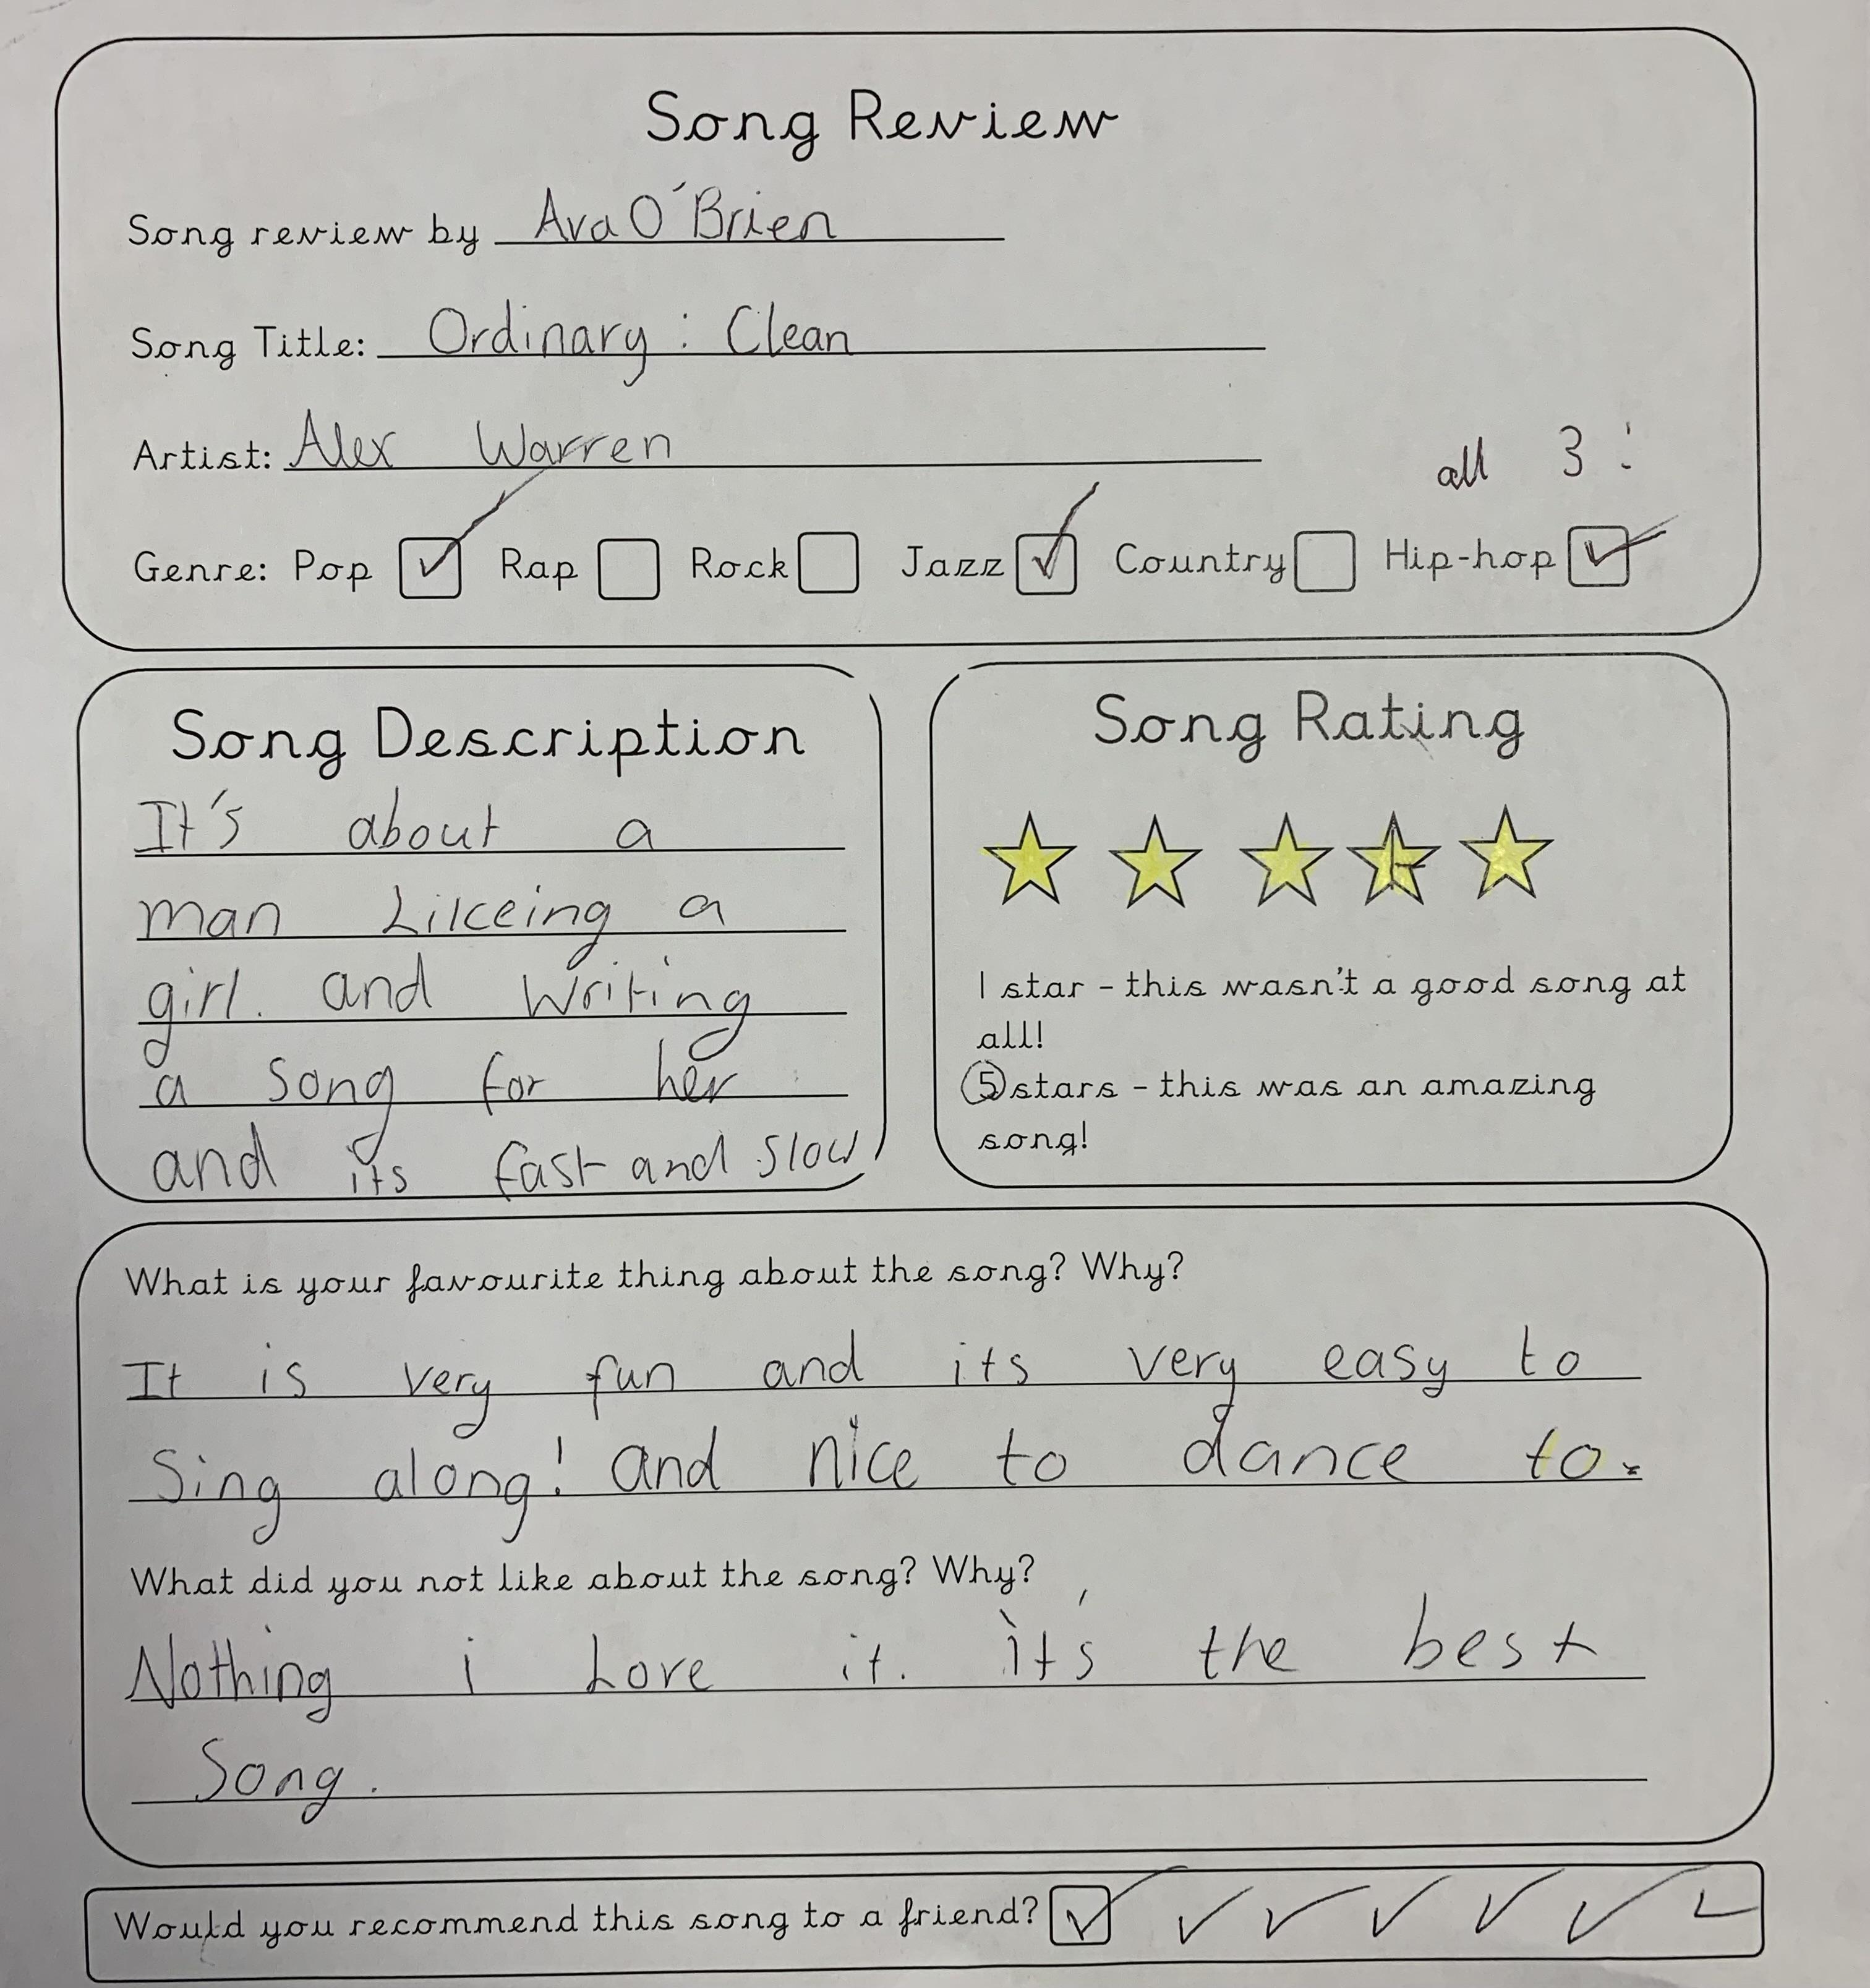 Song Review
Song review by Ava O'Brien
Song Title: Ordinary : Clean
Artist: Alex Warren
all 3 :
Genre: Pop Rap Rock Jazz Country Hip-hop
Song Description
It's about a
man Likeing a
girl. and writing
a song for her
and its fast and slow
Song Rating
1 star - this wasn't a good song at
all!
5 stars - this was an amazing
song!
What is your favourite thing about the song? Why?
It is very fun and its very easy to
Sing along! and nice to dance to.
What did you not like about the song? Why?
Nothing i Love it. it's the best
Song.
Would you recommend this song to a friend?